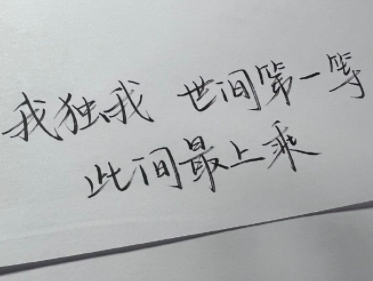 我独我 世间第一等
此间最上乘